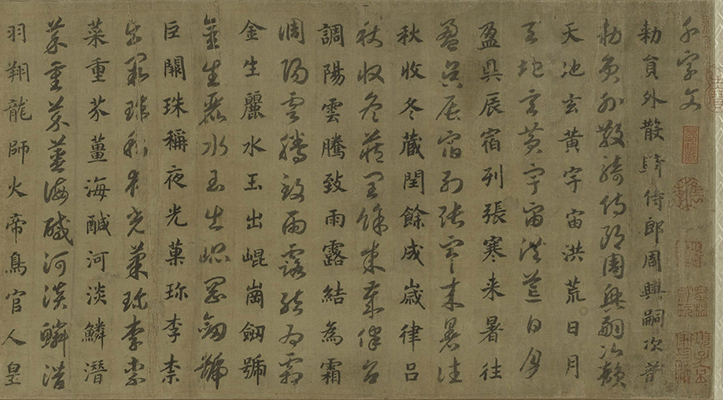 千字文
勑員外散騎侍郎周興嗣次韻
勑員外散騎侍郎周興嗣次韻
天地玄黃宇宙洪荒日月
天地玄黃宇宙洪荒日月
盈昃辰宿列張寒来暑往
盈昃辰宿列張寒来暑往
秋收冬藏閏餘成歲律呂
秋收冬藏閏餘成歲律呂
調陽雲騰致雨露結為霜
調陽雲騰致雨露結為霜
金生麗水玉出崐崗劒號
金生麗水玉出崐崗劒號
巨闕珠稱夜光菓珍李柰
巨闕珠稱夜光菓珍李柰
菜重芥薑海醎河淡鱗潛
菜重芥薑海醎河淡鱗潛
羽翔龍師火帝鳥官人皇